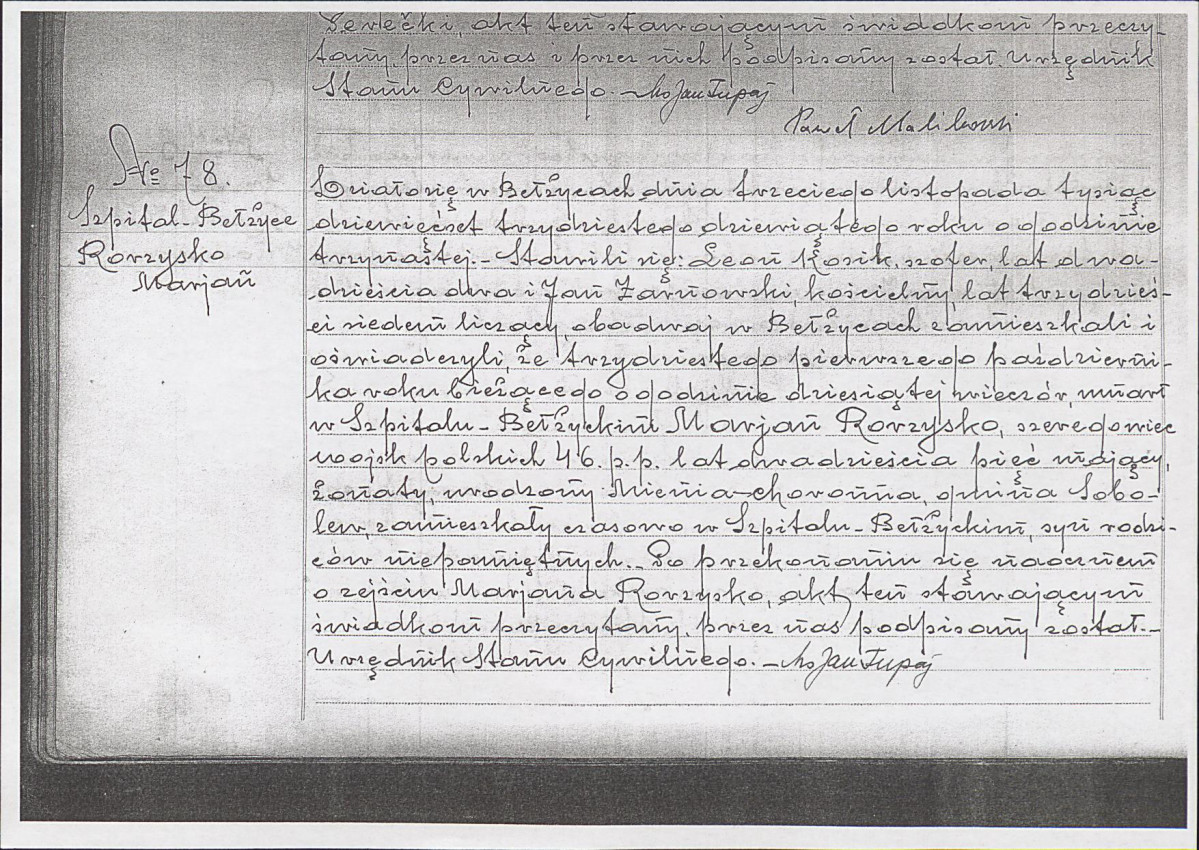 akt ten stawającym świadkom przeczy-
tany, przez nas i przez nich podpisany został. Urzędnik
Stanu Cywilnego. - Ks Jan Łupaj
Paweł Malikowski
№ 78.
Szpital-Bełżyce
Rorzysko
Marjan
Działo się w Bełżycach dnia trzeciego listopada tysiąc
dziewięćset trzydziestego dziewiątego roku o godzinie
trzynastej. - Stawili się: Leon Kosik, szofer, lat dwa-
dzieścia dwa i Jan Żarnowski, kościelny, lat trzydzieś-
ci siedem liczący, obadwaj w Bełżycach zamieszkali i
oświadczyli, że trzydziestego pierwszego październi-
ka roku bieżącego o godzinie dziesiątej wieczór, umarł
w Szpitalu-Bełżyckim Marjan Rorzysko, szeregowiec
wojsk polskich 46. p. p. lat dwadzieścia pięć mający,
żonaty, urodzony gmina Sobo-
lew, zamieszkały czasowo w Szpitalu-Bełżyckim, syn rodzi-
ców niepomiętnych. - Po przekonaniu się naocznem
o zejściu Marjana Rorzysko, akt ten stawającym
świadkom przeczytany, przez nas podpisany został. -
Urzędnik Stanu Cywilnego. - Ks Jan Łupaj